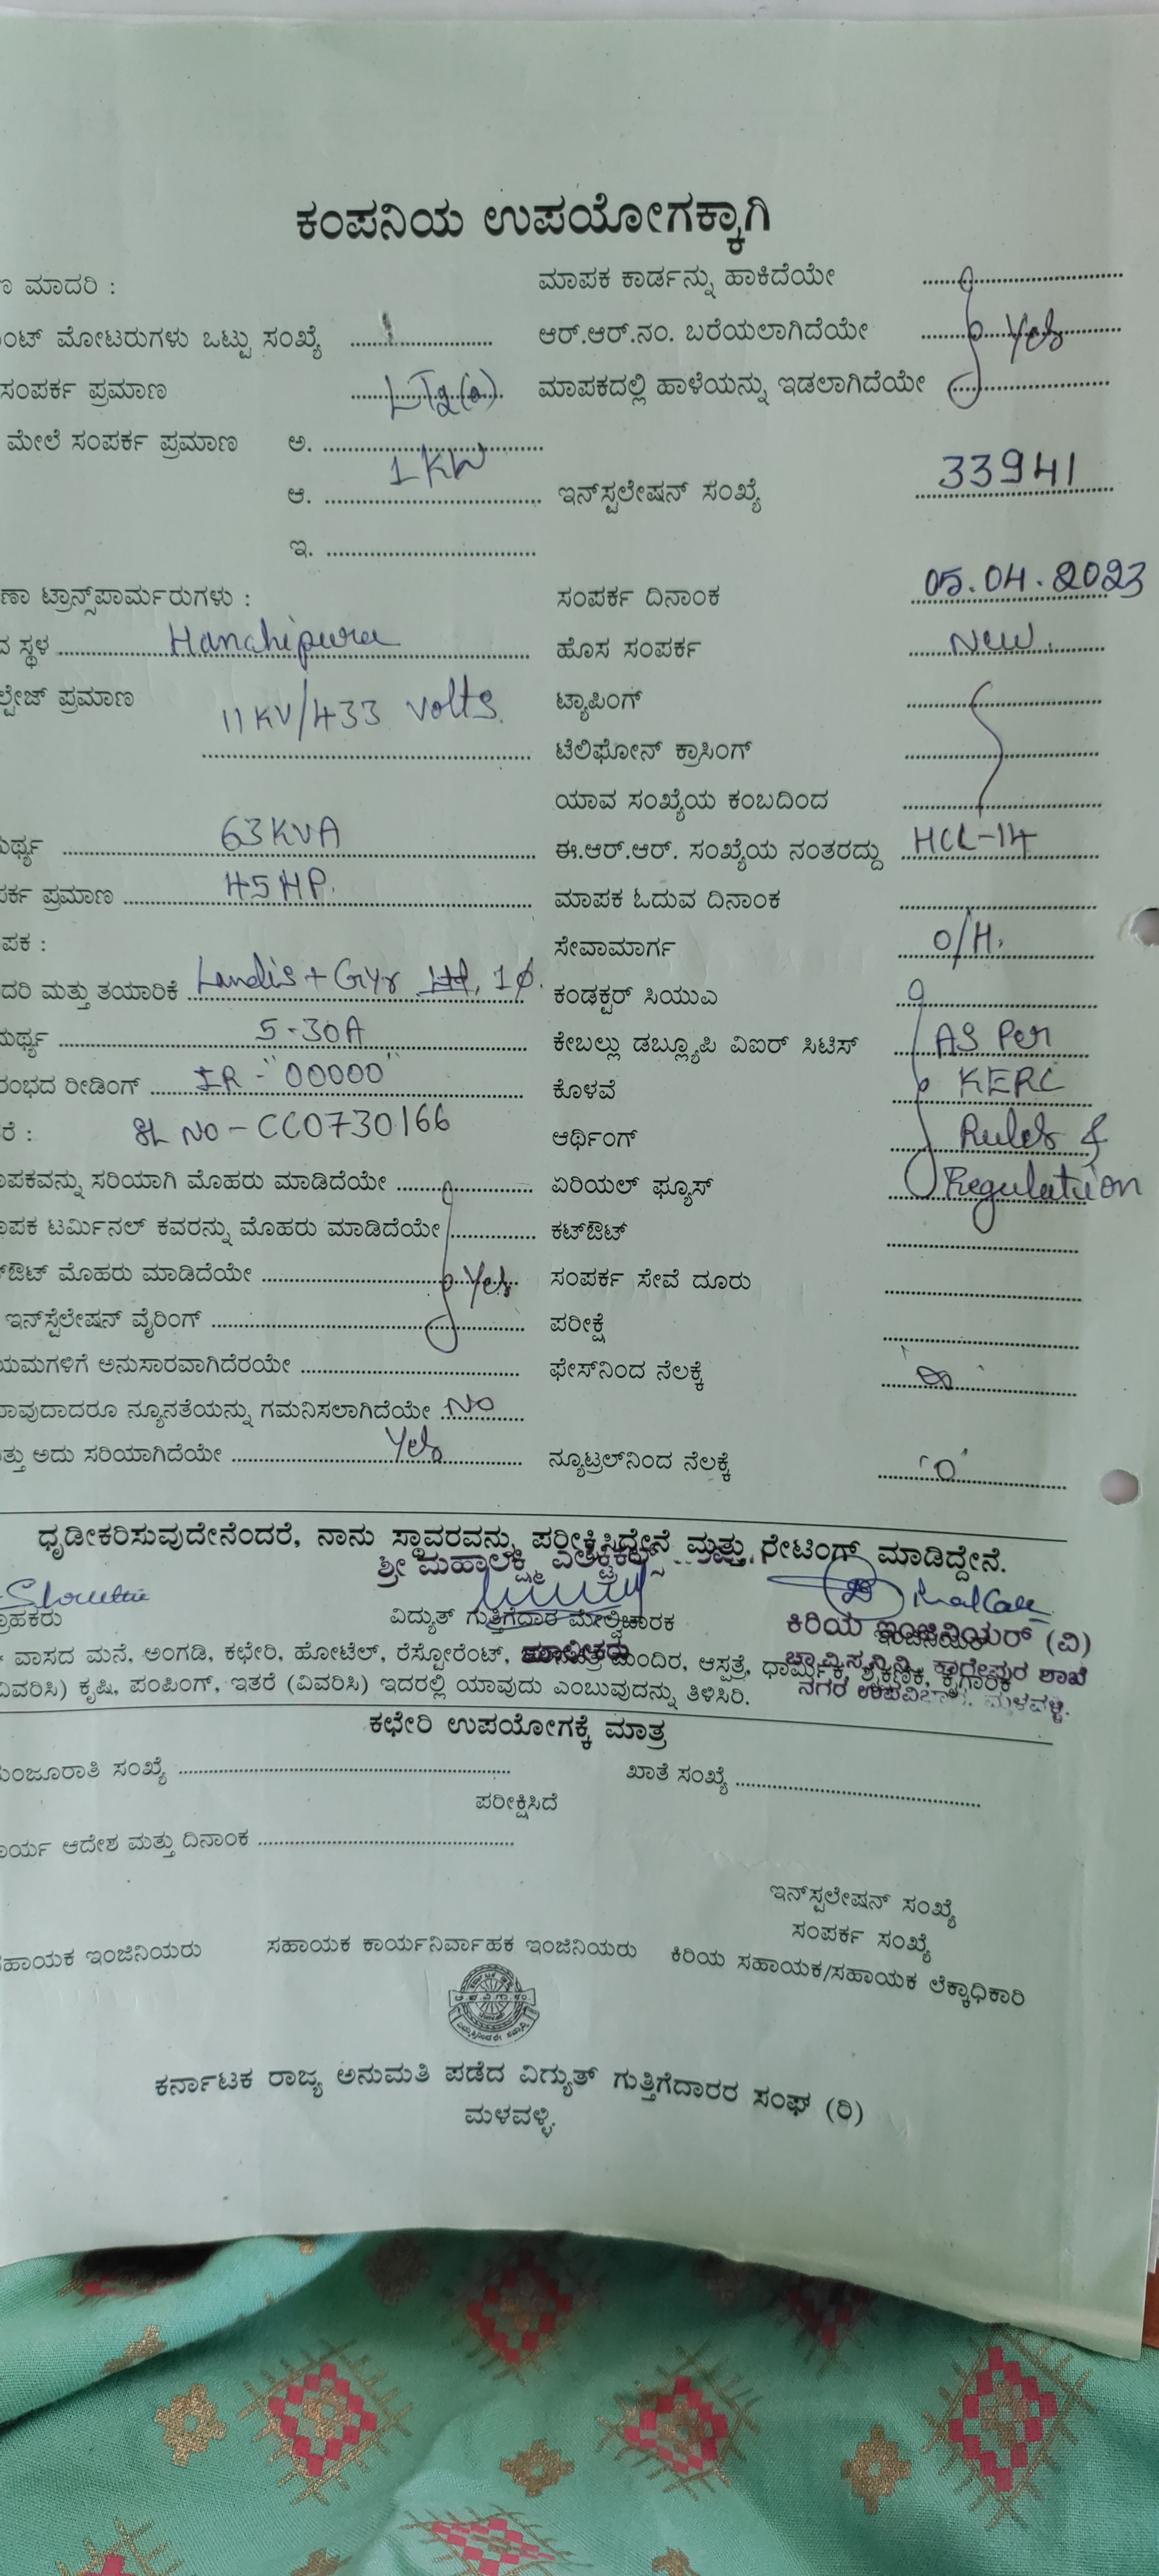 ಕಂಪನಿಯ ಉಪಯೋಗಕ್ಕಾಗಿ
ಮಾದರಿ : ಮಾಪಕ ಕಾರ್ಡನ್ನು ಹಾಕಿದೆಯೇ
ಮೋಟರುಗಳು ಒಟ್ಟು ಸಂಖ್ಯೆ 1 ಆರ್.ಆರ್.ನಂ. ಬರೆಯಲಾಗಿದೆಯೇ Yes
ಸಂಪರ್ಕ ಪ್ರಮಾಣ LT2(a) ಮಾಪಕದಲ್ಲಿ ಹಾಳೆಯನ್ನು ಇಡಲಾಗಿದೆಯೇ
ಮೇಲೆ ಸಂಪರ್ಕ ಪ್ರಮಾಣ ಅ.
ಆ. 1 KW ಇನ್‌ಸ್ಟಲೇಷನ್ ಸಂಖ್ಯೆ 33941
ಇ.
ಟ್ರಾನ್ಸ್‌ಫಾರ್ಮರುಗಳು : ಸಂಪರ್ಕ ದಿನಾಂಕ 05.04.2023
ಸ್ಥಳ Hanchipura ಹೊಸ ಸಂಪರ್ಕ New.
ಪ್ರಮಾಣ 11 KV/433 volts. ಟ್ಯಾಪಿಂಗ್
ಟೆಲಿಫೋನ್ ಕ್ರಾಸಿಂಗ್
ಯಾವ ಸಂಖ್ಯೆಯ ಕಂಬದಿಂದ
63 KVA ಈ.ಆರ್.ಆರ್. ಸಂಖ್ಯೆಯ ನಂತರದ್ದು HCL-14
ಪ್ರಮಾಣ 45 HP. ಮಾಪಕ ಓದುವ ದಿನಾಂಕ
ಸೇವಾಮಾರ್ಗ O/H.
ಮತ್ತು ತಯಾರಿಕೆ Landis + Gyr Ltd, 1ϕ. ಕಂಡಕ್ಟರ್ ಸಿಯುಎ
5-30A ಕೇಬಲ್ಲು ಡಬ್ಲ್ಯೂಪಿ ವಿಐರ್ ಸಿಟಿಸ್ AS Per
ರೀಡಿಂಗ್ IR - "00000" ಕೊಳವೆ KERC
SL NO - CC0730166 ಆರ್ಥಿಂಗ್ Rules &
ಸರಿಯಾಗಿ ಮೊಹರು ಮಾಡಿದೆಯೇ ಏರಿಯಲ್ ಫ್ಯೂಸ್ Regulation
ಟರ್ಮಿನಲ್ ಕವರನ್ನು ಮೊಹರು ಮಾಡಿದೆಯೇ ಕಟ್‌ಔಟ್
ಮೊಹರು ಮಾಡಿದೆಯೇ Yes ಸಂಪರ್ಕ ಸೇವೆ ದೂರು
ಇನ್‌ಸ್ಟೆಲೇಷನ್ ವೈರಿಂಗ್ ಪರೀಕ್ಷೆ
ಅನುಸಾರವಾಗಿದೆರಯೇ ಫೇಸ್‌ನಿಂದ ನೆಲಕ್ಕೆ
ನ್ಯೂನತೆಯನ್ನು ಗಮನಿಸಲಾಗಿದೆಯೇ No
ಅದು ಸರಿಯಾಗಿದೆಯೇ Yes ನ್ಯೂಟ್ರಲ್‌ನಿಂದ ನೆಲಕ್ಕೆ 'O'
ಧೃಡೀಕರಿಸುವುದೇನೆಂದರೆ, ನಾನು ಸ್ಥಾವರವನ್ನು ಪರೀಕ್ಷಿಸಿದ್ದೇನೆ ಮತ್ತು ರೇಟಿಂಗ್ ಮಾಡಿದ್ದೇನೆ.
ಶ್ರೀ ಮಹಾಲಕ್ಷ್ಮಿ
ವಿದ್ಯುತ್ ಗುತ್ತಿಗೆದಾರ ಮೇಲ್ವಿಚಾರಕ ಕಿರಿಯ ಇಂಜಿನಿಯರ್ (ವಿ)
ವಾಸದ ಮನೆ, ಅಂಗಡಿ, ಕಛೇರಿ, ಹೋಟೆಲ್, ರೆಸ್ಟೋರೆಂಟ್, ಮಂದಿರ, ಆಸ್ಪತ್ರೆ, ಧಾರ್ಮಿಕ, ಶೈಕ್ಷಣಿಕ, ಕೈಗಾರಿಕೆ
ಕೃಷಿ, ಪಂಪಿಂಗ್, ಇತರೆ (ವಿವರಿಸಿ) ಇದರಲ್ಲಿ ಯಾವುದು ಎಂಬುವುದನ್ನು ತಿಳಿಸಿರಿ.
ಕಛೇರಿ ಉಪಯೋಗಕ್ಕೆ ಮಾತ್ರ
ಸಂಖ್ಯೆ ಖಾತೆ ಸಂಖ್ಯೆ
ಪರೀಕ್ಷಿಸಿದೆ
ಆದೇಶ ಮತ್ತು ದಿನಾಂಕ
ಇನ್‌ಸ್ಟಲೇಷನ್ ಸಂಖ್ಯೆ
ಸಂಪರ್ಕ ಸಂಖ್ಯೆ
ಇಂಜಿನಿಯರು ಸಹಾಯಕ ಕಾರ್ಯನಿರ್ವಾಹಕ ಇಂಜಿನಿಯರು ಕಿರಿಯ ಸಹಾಯಕ/ಸಹಾಯಕ ಲೆಕ್ಕಾಧಿಕಾರಿ
ಕರ್ನಾಟಕ ರಾಜ್ಯ ಅನುಮತಿ ಪಡೆದ ವಿದ್ಯುತ್ ಗುತ್ತಿಗೆದಾರರ ಸಂಘ (ರಿ)
ಮಳವಳ್ಳಿ.